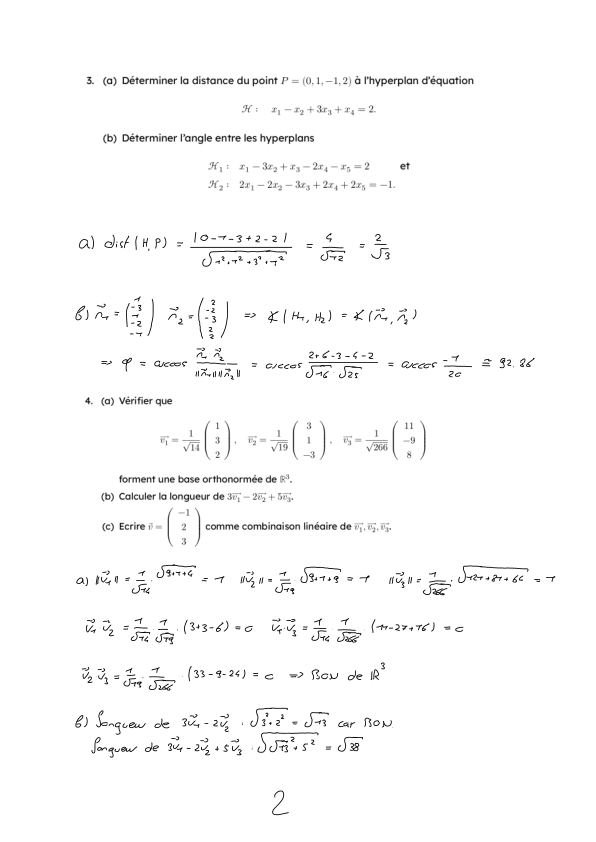 3. (a) Déterminer la distance du point P = (0, 1, −1, 2) à l'hyperplan d'équation
ℋ : x₁ − x₂ + 3x₃ + x₄ = 2.
(b) Déterminer l'angle entre les hyperplans
ℋ₁ : x₁ − 3x₂ + x₃ − 2x₄ − x₅ = 2 et
ℋ₂ : 2x₁ − 2x₂ − 3x₃ + 2x₄ + 2x₅ = −1.
a) dist(H,P) = |0-1-3+2-2| / √(1²+1²+3²+1²) = 4/√12 = 2/√3
b) n⃗₁ = (1 -3 1 -2 -1) n⃗₂ = (2 -2 -3 2 2) ⇒ ∢(H₁, H₂) = ∢(n⃗₁, n⃗₂)
⇒ φ = arccos n⃗₁ n⃗₂ / ‖n⃗₁‖‖n⃗₂‖ = arccos (2+6-3-4-2) / (√16 · √25) = arccos -1/20 ≅ 92.86
4. (a) Vérifier que
v₁⃗ = 1/√14 (1 3 2), v₂⃗ = 1/√19 (3 1 −3), v₃⃗ = 1/√266 (11 −9 8)
forment une base orthonormée de ℝ³.
(b) Calculer la longueur de 3v₁⃗ − 2v₂⃗ + 5v₃⃗.
(c) Ecrire v⃗ = (−1 2 3) comme combinaison linéaire de v₁⃗, v₂⃗, v₃⃗.
a) ‖v⃗₁‖ = 1/√14 · √(9+1+4) = 1 ‖v⃗₂‖ = 1/√19 · √(9+1+9) = 1 ‖v⃗₃‖ = 1/√266 · √(121+81+64) = 1
v⃗₁ v⃗₂ = 1/√14 · 1/√19 · (3+3-6) = 0 v⃗₁ · v⃗₃ = 1/√14 · 1/√266 · (11-27+16) = 0
v⃗₂ v⃗₃ = 1/√19 · 1/√266 · (33-9-24) = 0 ⇒ BON de ℝ³
b) longueur de 3v⃗₁ - 2v⃗₂ : √(3²+2²) = √13 car BON.
longueur de 3v⃗₁ - 2v⃗₂ + 5v⃗₃ : √(√13² + 5²) = √38
2